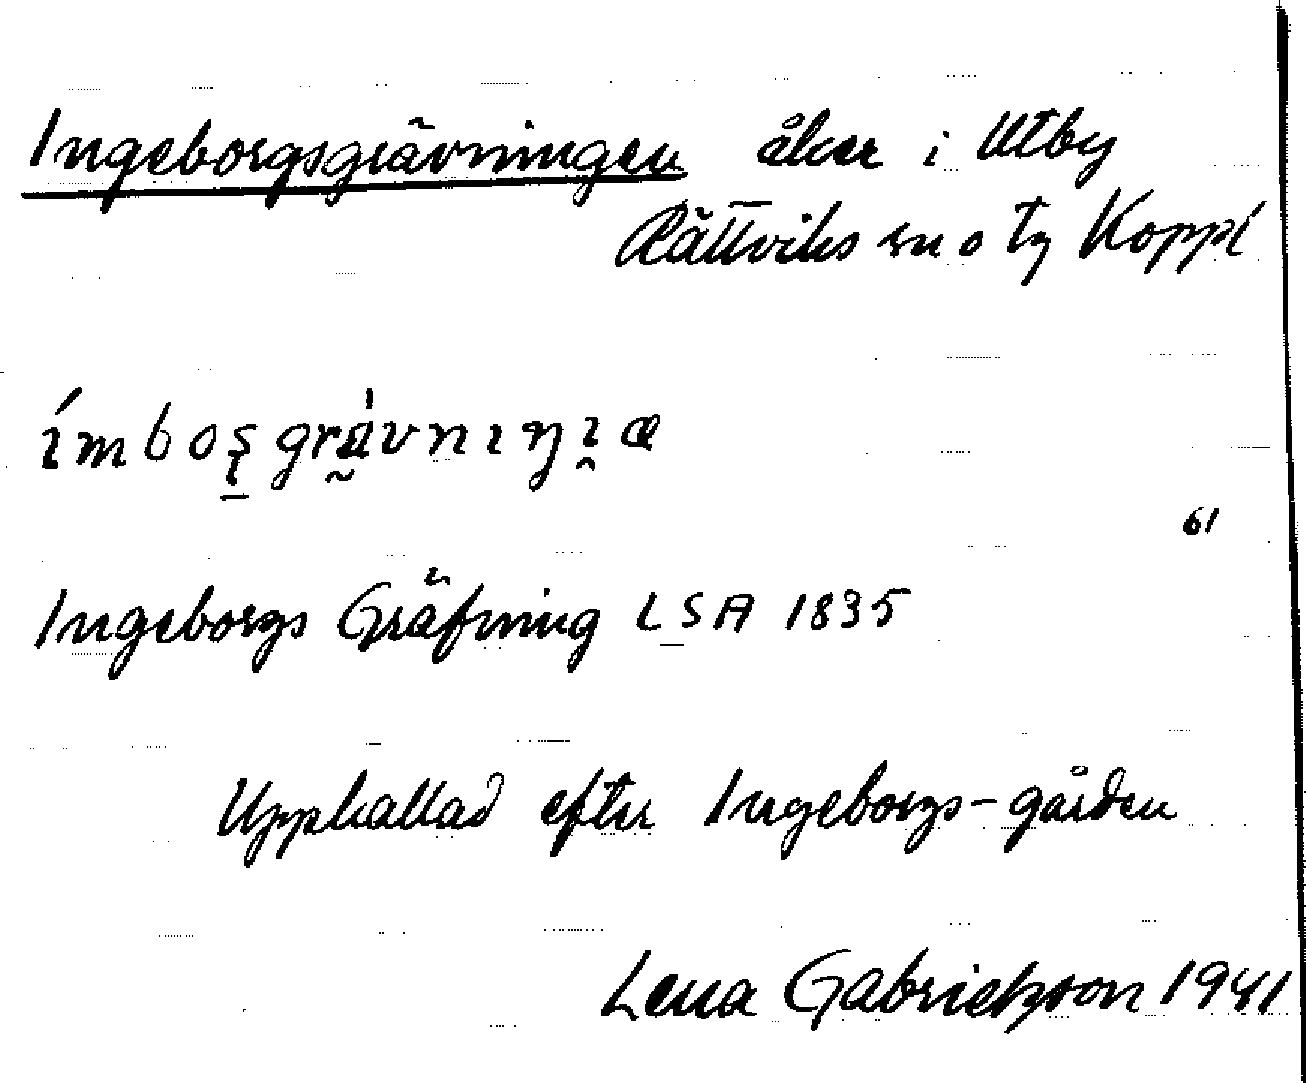 Ingeborgsgrävningen åker i Utby
Rättviks sn o tg Koppl
61
Ingeborgs Gräfning LSA 1835
Uppkallad efter Ingeborgs-gården
Lena Gabrielsson 1941